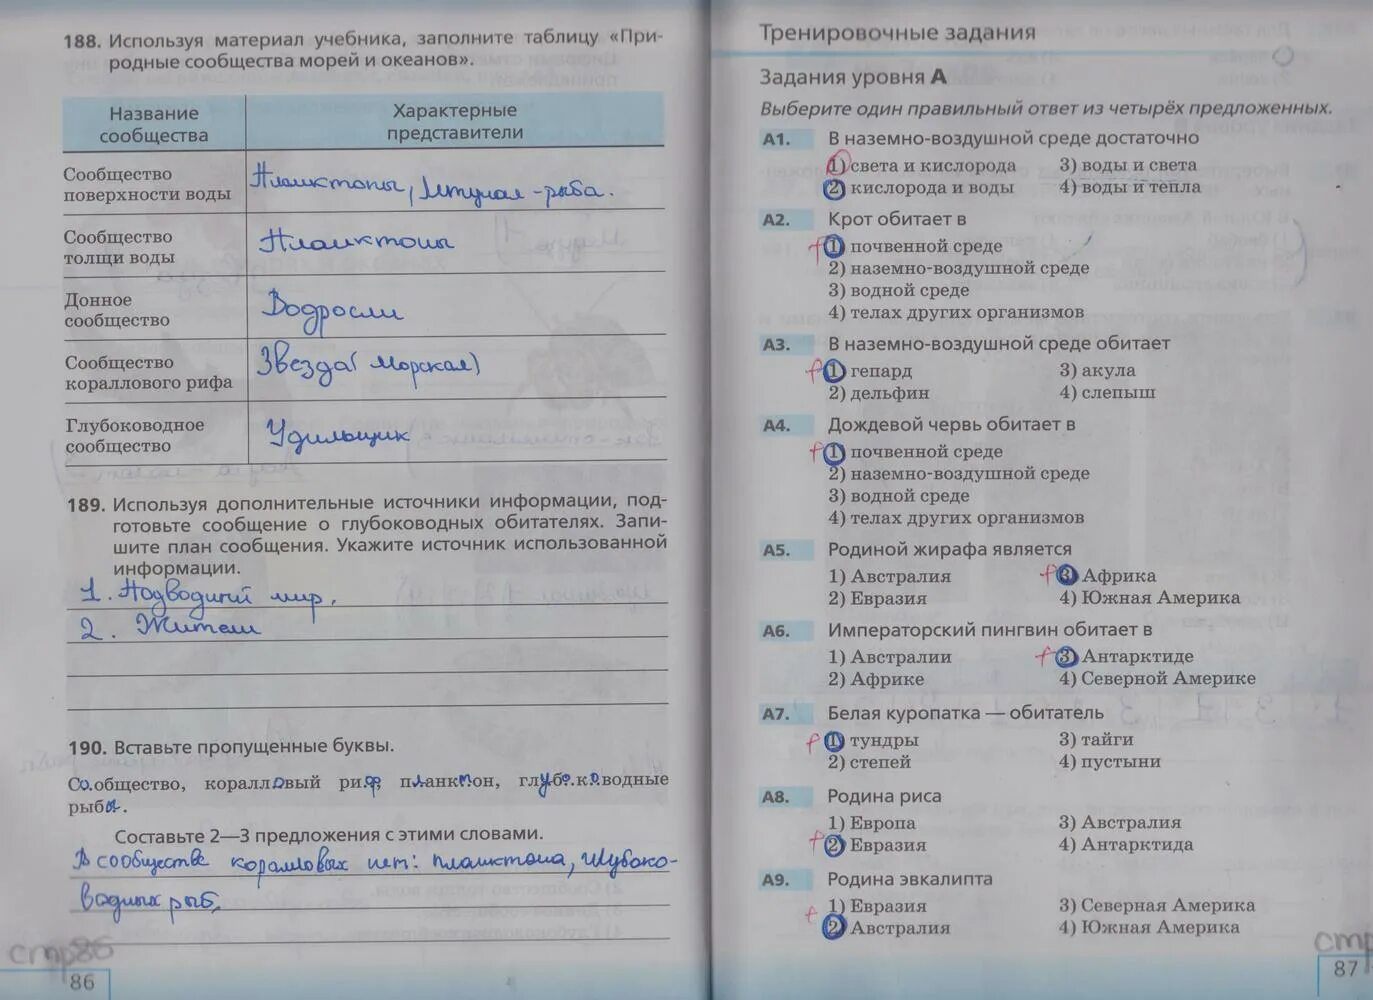 188. Используя материал учебника, заполните таблицу «При-
родные сообщества морей и океанов».
Название
сообщества
Характерные
представители
Сообщество
поверхности воды
Планктоны, Летучая-рыба.
Сообщество
толщи воды
Планктоны
Донное
сообщество
Водросли
Сообщество
кораллового рифа
Звезда (Морская)
Глубоководное
сообщество
Удильщик
189. Используя дополнительные источники информации, под-
готовьте сообщение о глубоководных обитателях. Запи-
шите план сообщения. Укажите источник использованной
информации.
1. Подводный мир,
2. Жители
190. Вставьте пропущенные буквы.
Сообщество, коралловый риф, планктон, глубоководные
рыбы.
Составьте 2—3 предложения с этими словами.
В сообществе коралловых нет: планктона, глубоко-
водных рыб.
стр86
86
Тренировочные задания
Задания уровня А
Выберите один правильный ответ из четырёх предложенных.
А1. В наземно-воздушной среде достаточно
1) света и кислорода 3) воды и света
2) кислорода и воды 4) воды и тепла
А2. Крот обитает в
1) почвенной среде
2) наземно-воздушной среде
3) водной среде
4) телах других организмов
А3. В наземно-воздушной среде обитает
1) гепард 3) акула
2) дельфин 4) слепыш
А4. Дождевой червь обитает в
1) почвенной среде
2) наземно-воздушной среде
3) водной среде
4) телах других организмов
А5. Родиной жирафа является
1) Австралия 3) Африка
2) Евразия 4) Южная Америка
А6. Императорский пингвин обитает в
1) Австралии 3) Антарктиде
2) Африке 4) Северной Америке
А7. Белая куропатка — обитатель
1) тундры 3) тайги
2) степей 4) пустыни
А8. Родина риса
1) Европа 3) Австралия
2) Евразия 4) Антарктида
А9. Родина эвкалипта
1) Евразия 3) Северная Америка
2) Австралия 4) Южная Америка
стр
87